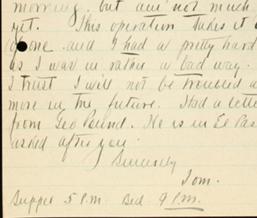 morning, but am not much
yet. This operation takes it
one and I had a pretty hard
as I was in rather a bad way.
I trust I will not be troubled
more in the future. Had a lette
from Geo Bund. He is in El Pas
asked after you.
Sincerely
Tom.
Supper 5 P.M. Bed 9 P.M.